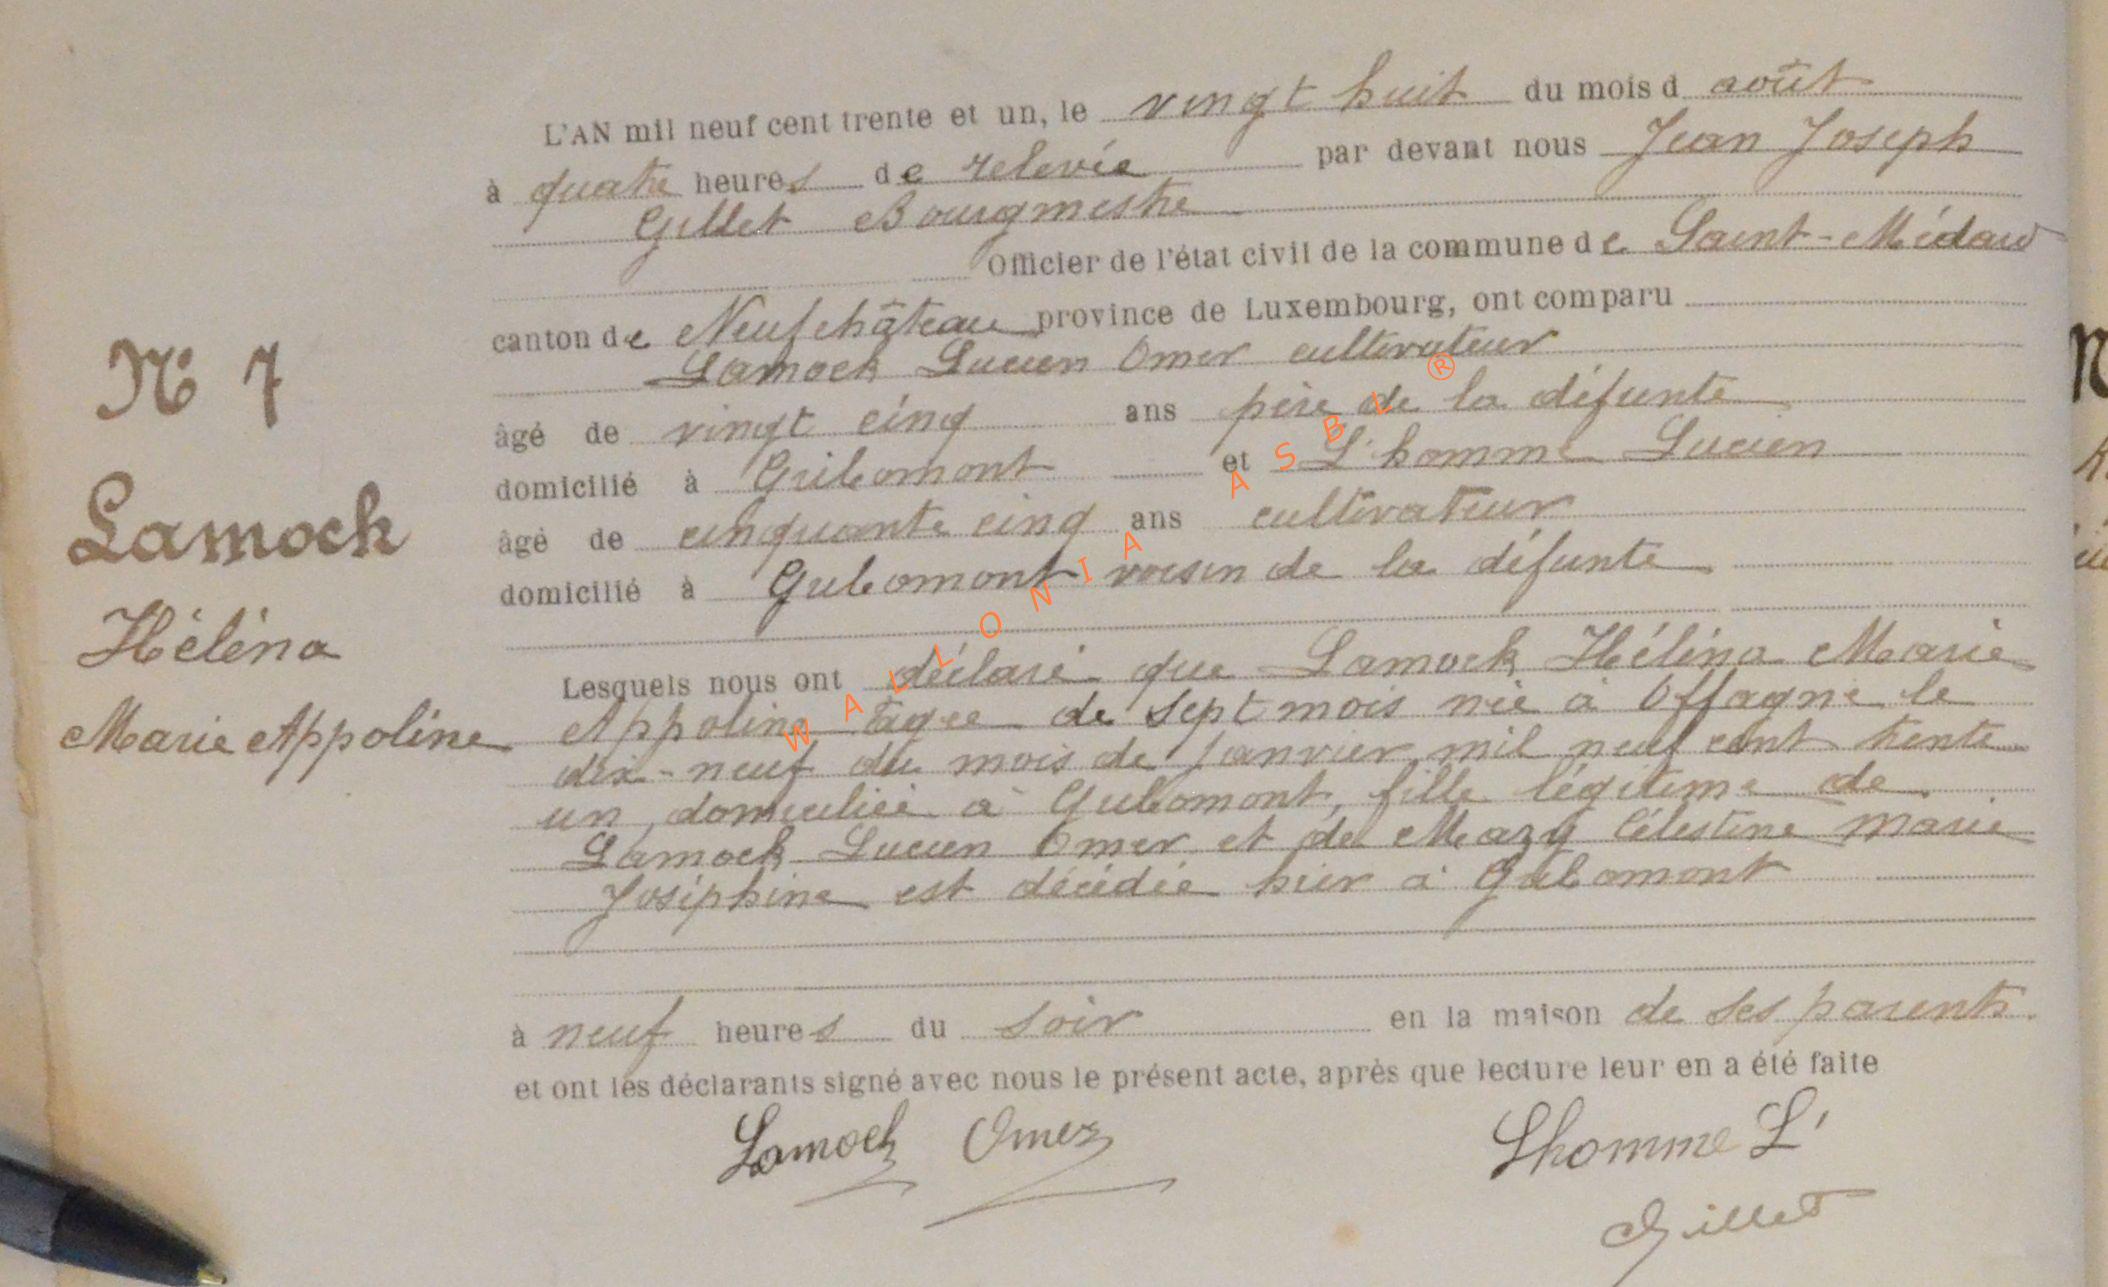 L'AN mil neuf cent trente et un, le vingt huit du mois d août
à quatre heures de relevée par devant nous Jean Joseph
Gillet Bourgmestre
Officier de l'état civil de la commune de Saint-Médard
canton de Neufchâteau province de Luxembourg, ont comparu
Lamock Lucien Omer cultivateur
âgé de vingt cinq ans père de la défunte
domicilié à Gribomont et L'homme Lucien
âgé de cinquante cinq ans cultivateur
domicilié à Gribomont voisin de la défunte
N° 7
Lamock
Héléna
Marie Appoline
Lesquels nous ont déclaré que Lamock Héléna Marie
Appoline âgée de sept mois née à Offagne le
dix-neuf du mois de Janvier mil neuf cent trente
un, domiciliée à Gribomont, fille légitime de
Lamock Lucien Omer et de Mazy Célestine Marie
Joséphine est décédée hier à Gribomont
à neuf heures du soir en la maison de ses parents.
et ont les déclarants signé avec nous le présent acte, après que lecture leur en a été faite
Lamock Omer Lhomme L'
Gillet
WALLONIA ASBL ®